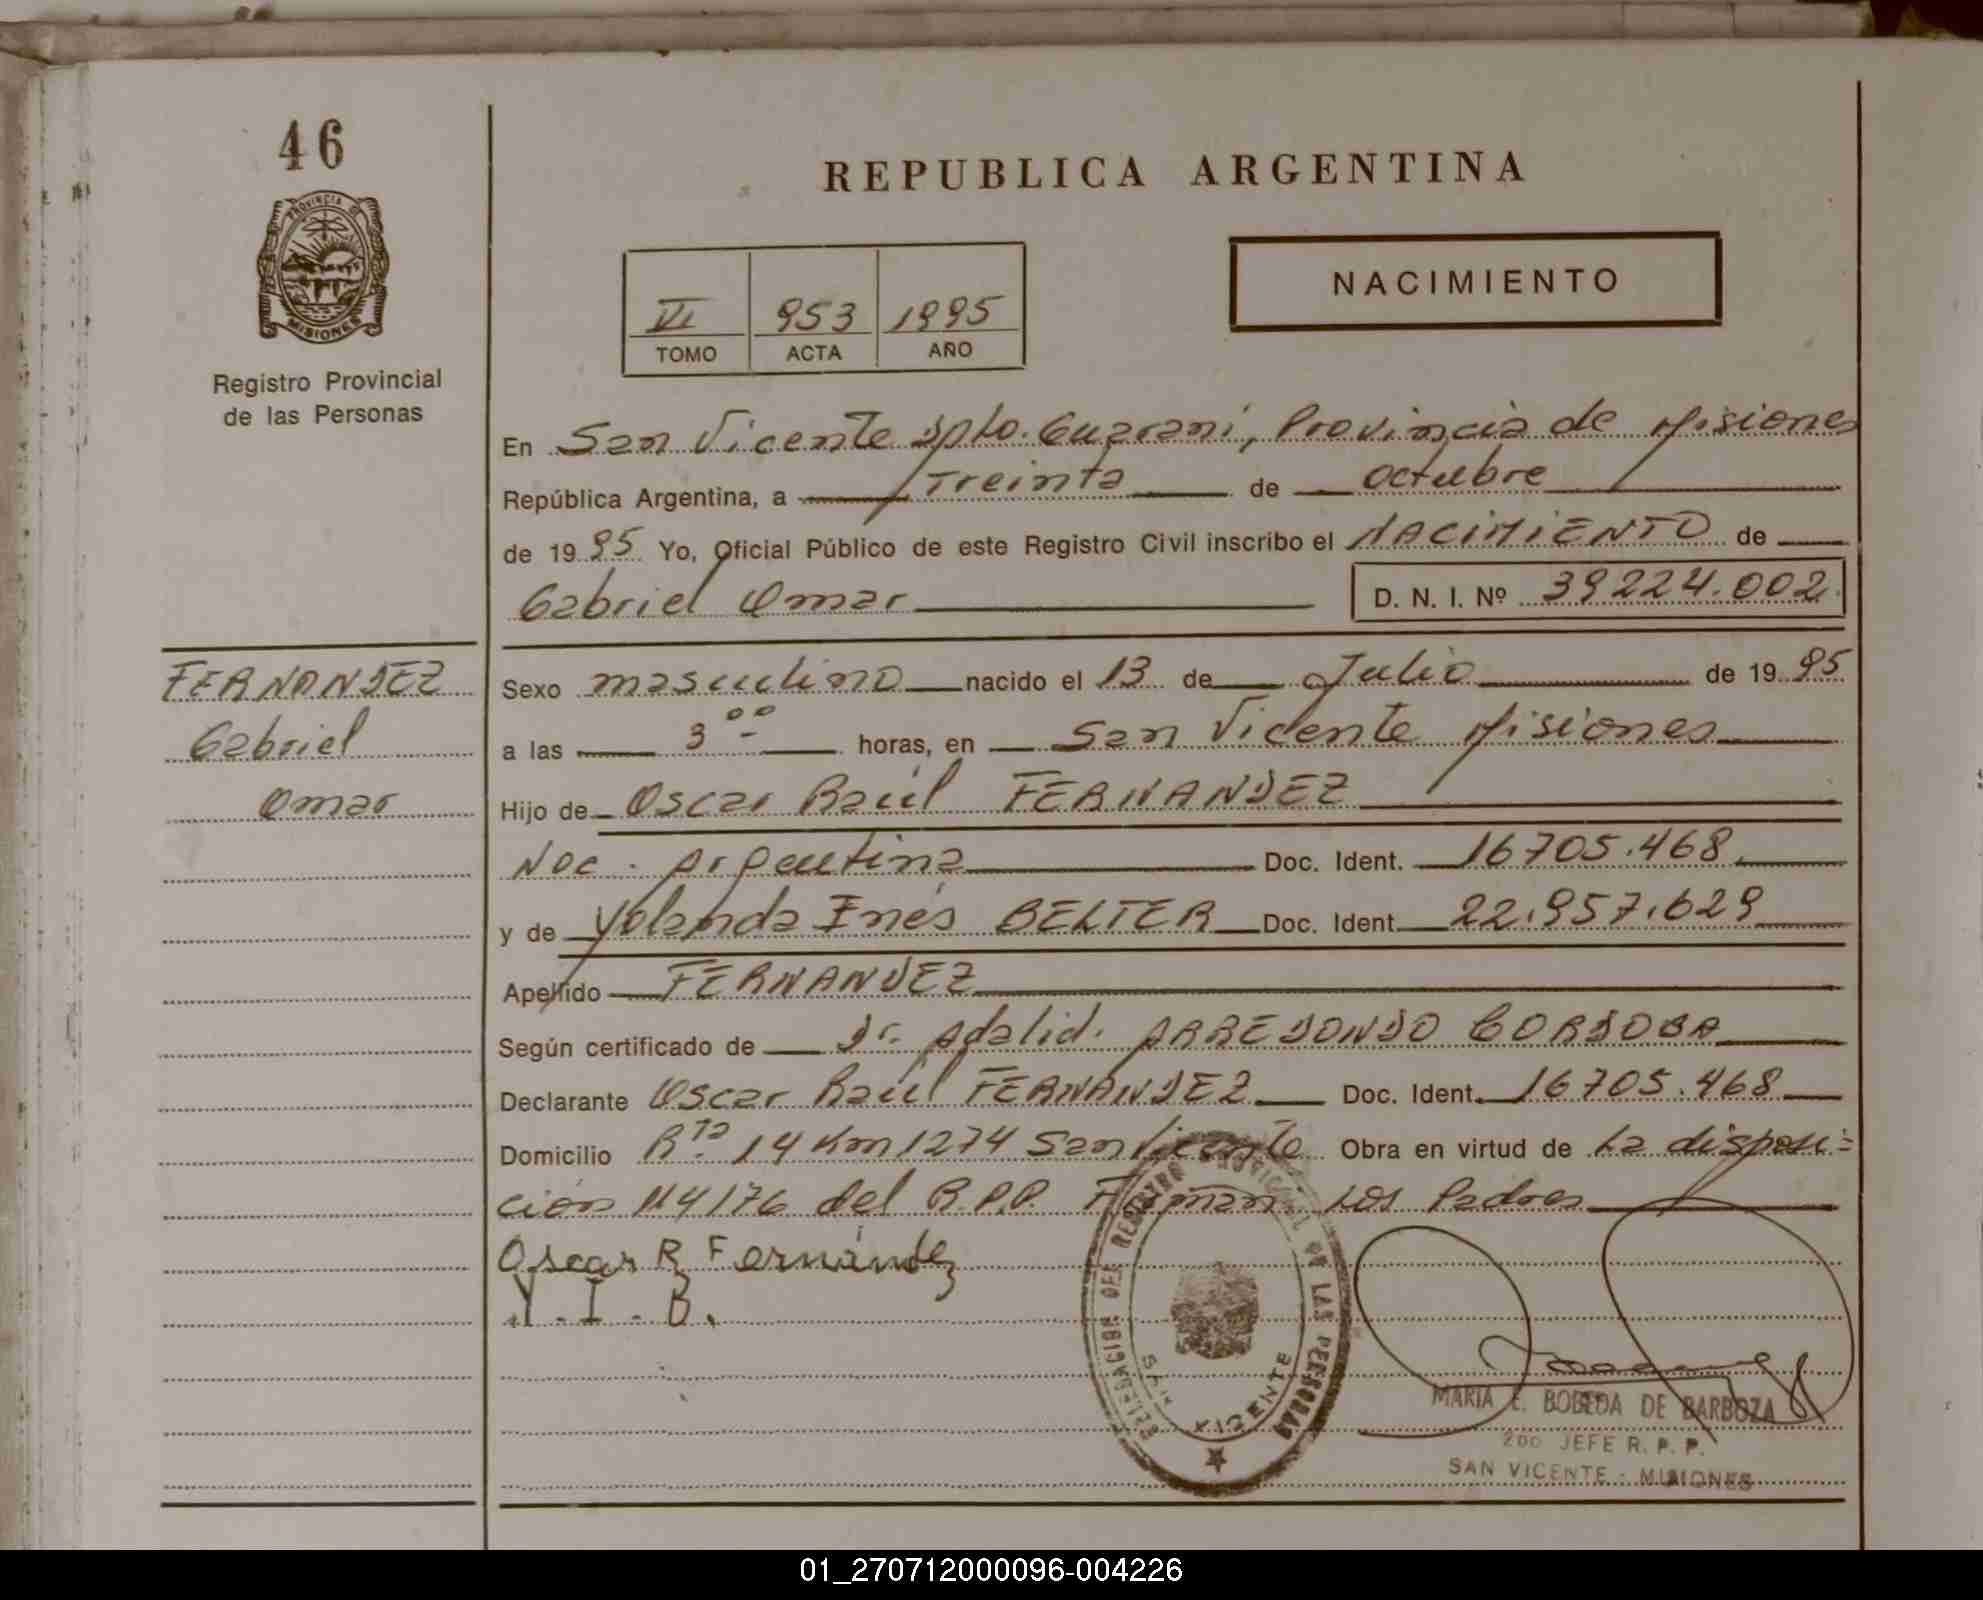 46
REPUBLICA ARGENTINA
PROVINCIA DE
MISIONES
Registro Provincial
de las Personas
VI 953 1995
TOMO ACTA AÑO
NACIMIENTO
En San Vicente Dpto. Guarani, Provincia de Misiones
República Argentina, a Treinta de octubre
de 1995 Yo, Oficial Público de este Registro Civil inscribo el NACIMIENTO de
Gabriel Omar D. N. I. Nº 39224.002
FERNANDEZ
Gabriel
Omar
Sexo masculino nacido el 13 de Julio de 1995
a las 3 00 horas, en San Vicente Misiones
Hijo de Oscar Raúl FERNANDEZ
Nac. Argentina Doc. Ident. 16705.468
y de Yolanda Inés BELTER Doc. Ident. 22.957.629
Apellido FERNANDEZ
Según certificado de Dr. Adalid. ARREDONDO CORDOBA
Declarante Oscar Raúl FERNANDEZ Doc. Ident. 16705.468
Domicilio Rta. 14 Km 1274 San Vicente Obra en virtud de La disposi=
ción 114/76 del R.P.P. Firman Los Padres
Oscar R Fernández
Y. I. B.
DELEGACION DEL REGISTRO PROVINCIAL DE LAS PERSONAS
SAN VICENTE
MARIA E. BOBEDA DE BARBOZA
2do JEFE R. P. P.
SAN VICENTE - MISIONES
01_270712000096-004226